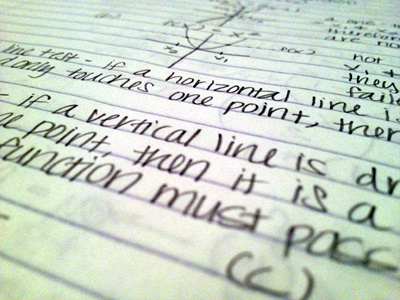 a one
therefore
are no
not
line test - if a horizontal line is
only touches one point, then
they
fails
- if a vertical line is dr
ne point, then it is a
function must pass
(c)